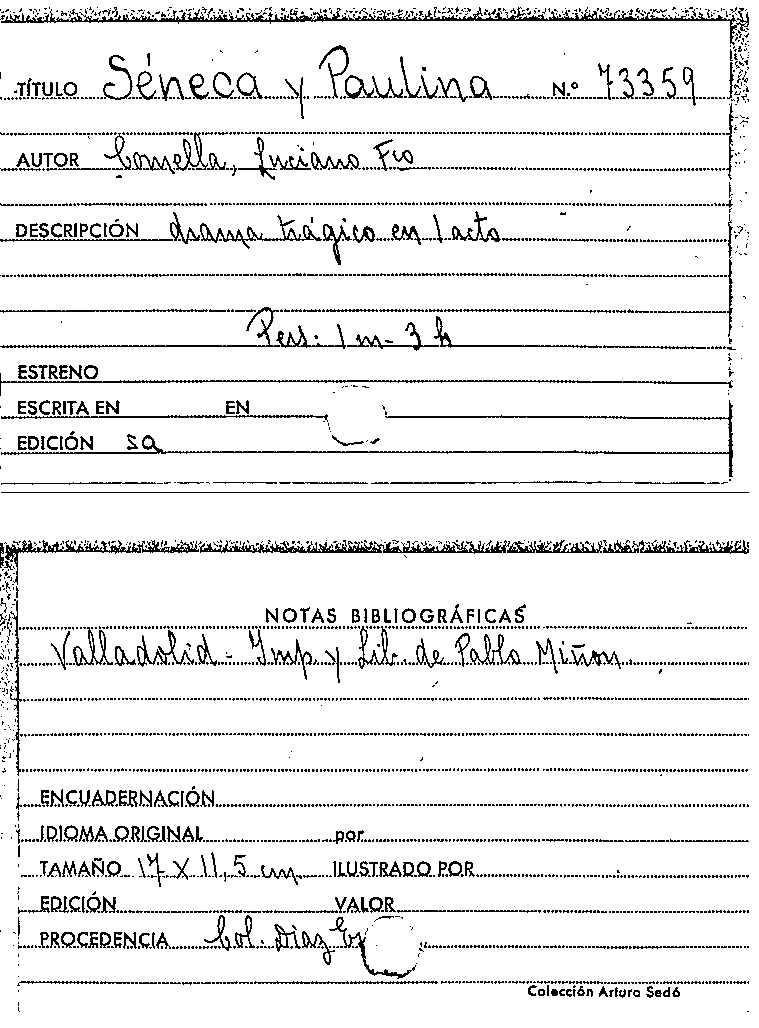 TÍTULO Séneca y Paulina N.º 73359
AUTOR Comella, Luciano Fco
DESCRIPCIÓN drama trágico en 1 acto
Pers: 1 m - 3 h
ESTRENO
ESCRITA EN EN
EDICIÓN sa
NOTAS BIBLIOGRÁFICAS
Valladolid - Imp. y Lib. de Pablo Miñon
ENCUADERNACIÓN
IDIOMA ORIGINAL por
TAMAÑO 17 X 11,5 cm. ILUSTRADO POR
EDICIÓN VALOR
PROCEDENCIA Col. Diaz
Colección Arturo Sedó